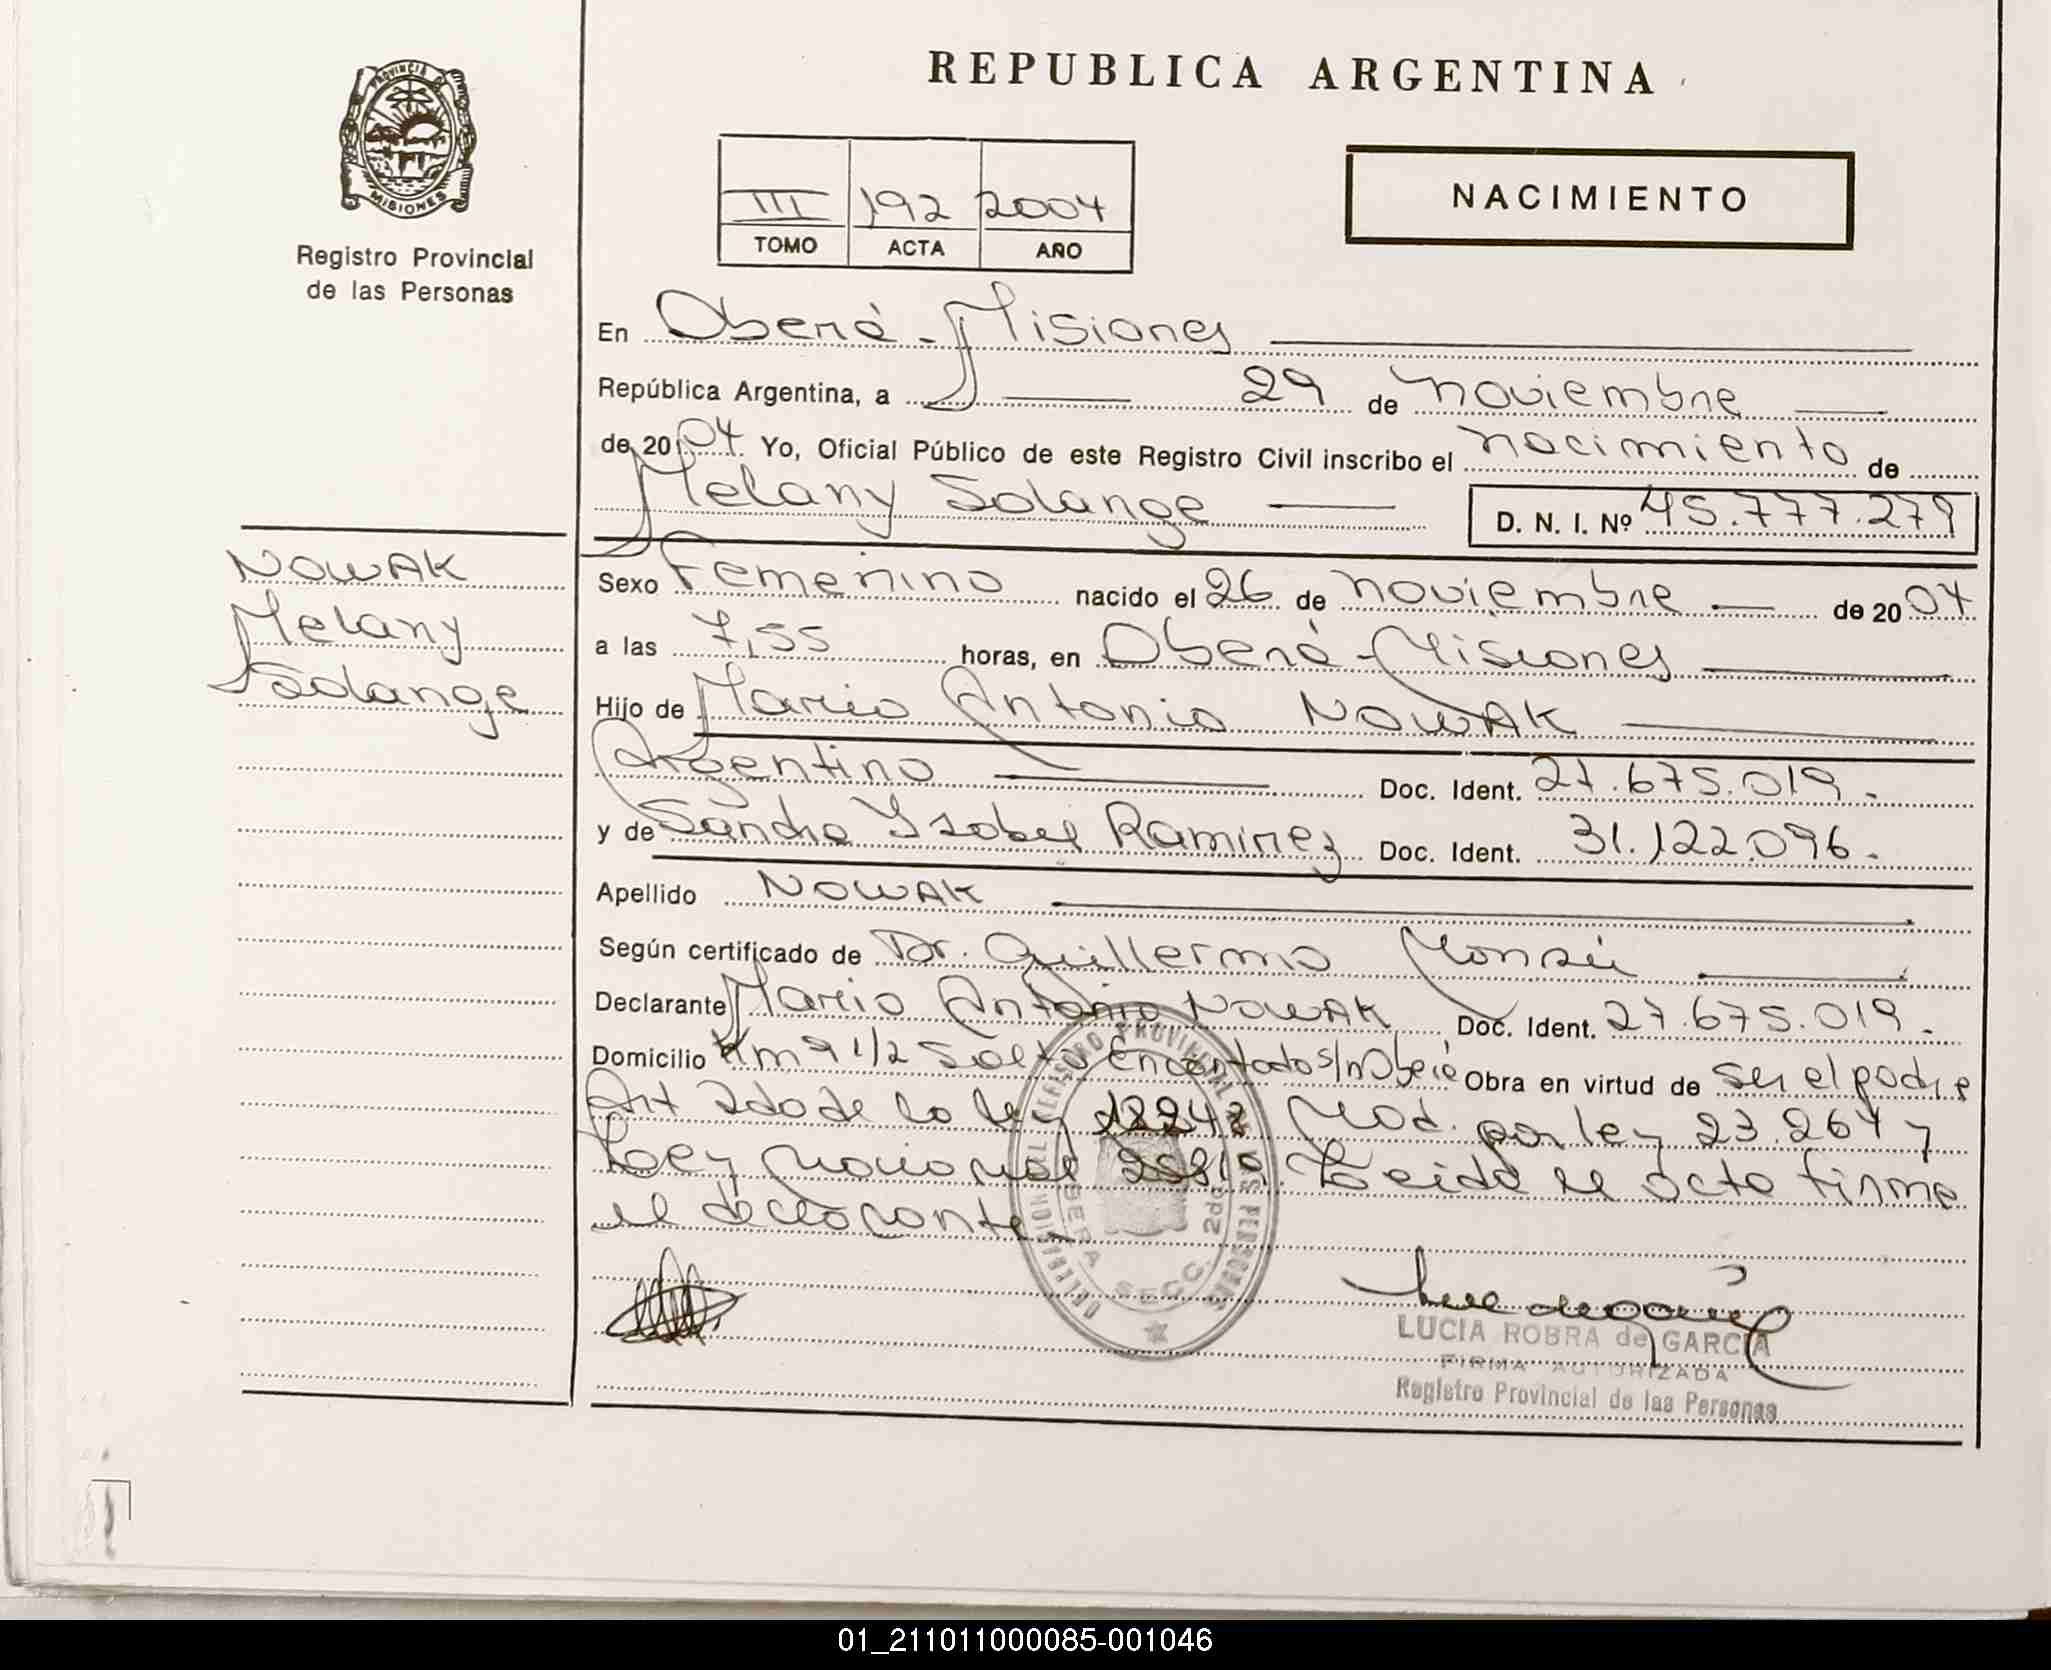 REPUBLICA ARGENTINA
PROVINCIA DE
MISIONES
Registro Provincial
de las Personas
III 192 2004
TOMO ACTA AÑO
NACIMIENTO
En Oberá - Misiones
República Argentina, a 29 de noviembre
de 2004 Yo, Oficial Público de este Registro Civil inscribo el nacimiento de
Melany Solange D. N. I. Nº 45.777.279
NOWAK
Melany
Solange
Sexo Femenino nacido el 26 de noviembre de 2004
a las 7,55 horas, en Oberá - Misiones
Hijo de Mario Antonio NOWAK
Argentino Doc. Ident. 27.675.019.
y de Sandra Ysabel Ramirez Doc. Ident. 31.122.096.
Apellido NOWAK
Según certificado de Dr. Guillermo
Declarante Mario Antonio NOWAK Doc. Ident. 27.675.019.
Domicilio Km 9 1/2 Salto Encantado s/n Oberá Obra en virtud de ser el padre
Art 2do de la ley Mod. por ley 23.264 y
Ley Nacional Leida el acta firma
el declarante
REGISTRO PROVINCIAL DE LAS PERSONAS
OBERA SECC. 2da
LUCIA ROBRA de GARCIA
FIRMA AUTORIZADA
Registro Provincial de las Personas
01_211011000085-001046